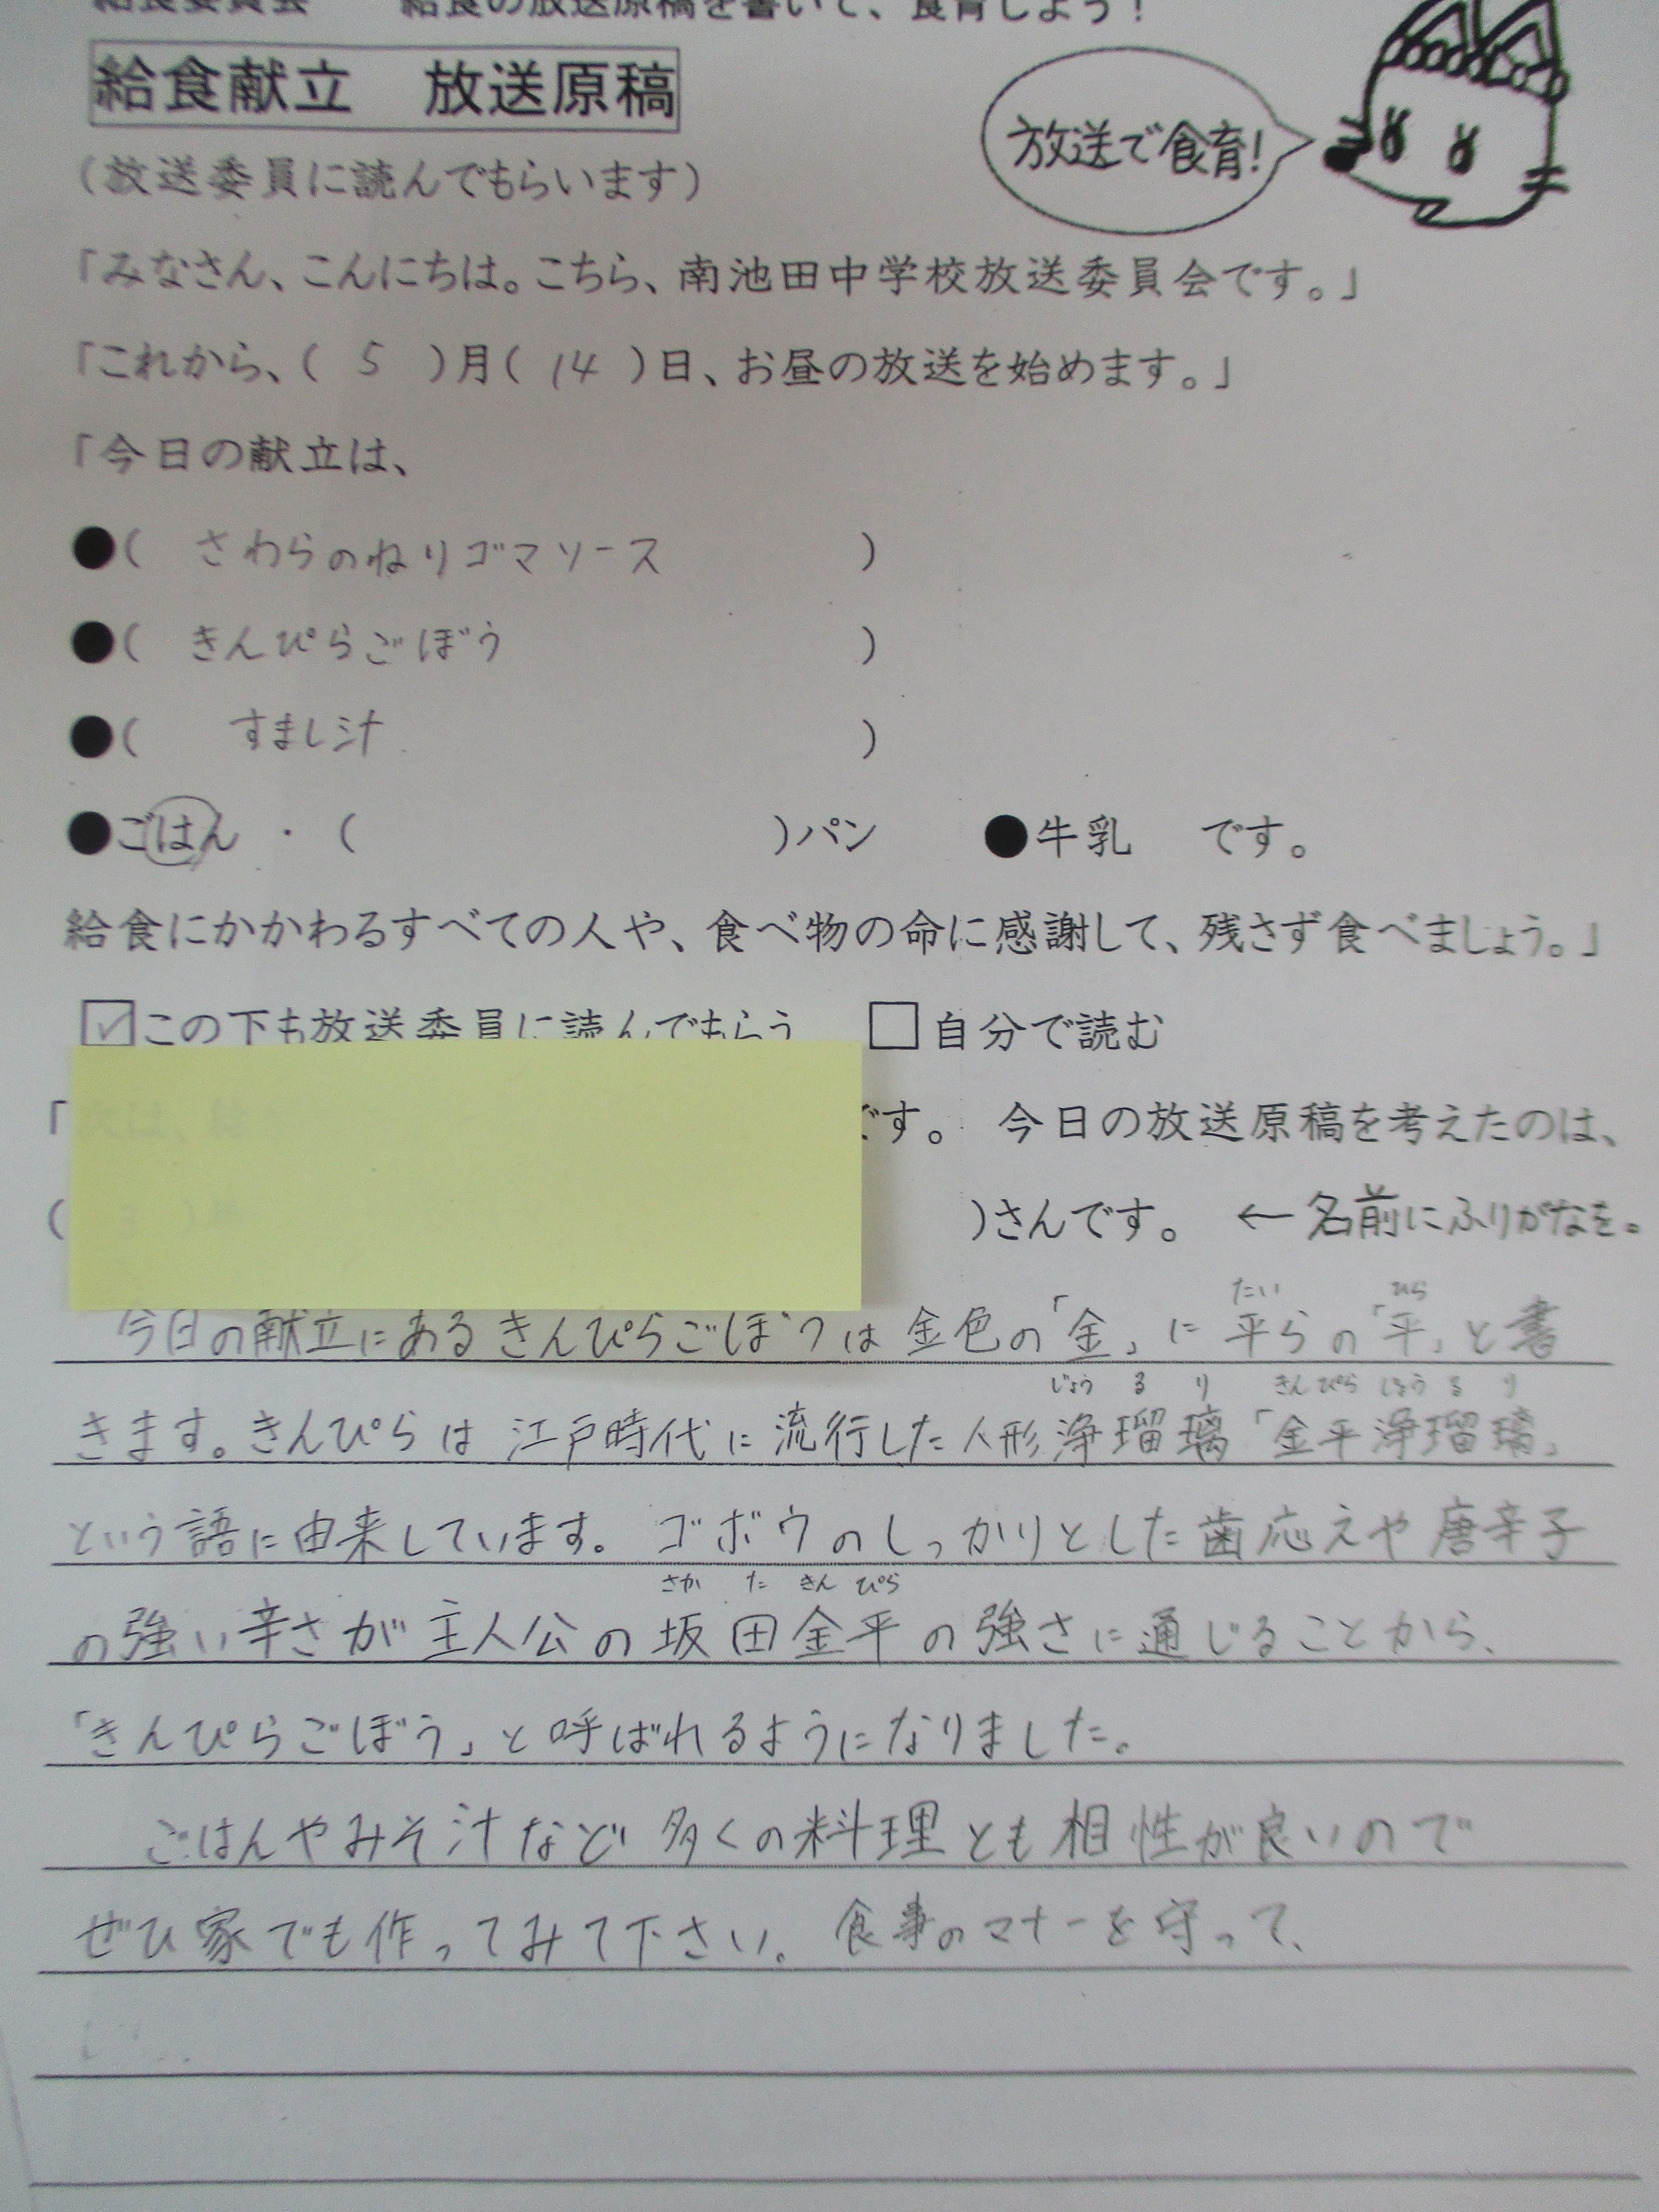 給食委員会　給食の放送原稿を書いて、食育しよう！
給食献立　放送原稿
放送で食育！
（放送委員に読んでもらいます）
「みなさん、こんにちは。こちら、南池田中学校放送委員会です。」
「これから、（ 5 ）月（ 14 ）日、お昼の放送を始めます。」
「今日の献立は、
●（ さわらのねりゴマソース ）
●（ きんぴらごぼう ）
●（ すまし汁 ）
●ごはん ・（ ）パン ●牛乳 です。
給食にかかわるすべての人や、食べ物の命に感謝して、残さず食べましょう。」
☑この下も放送委員に読んでもらう □自分で読む
「次は、給 です。 今日の放送原稿を考えたのは、
（ 3 ） ）さんです。 ←名前にふりがなを。
たい ひら
今日の献立にあるきんぴらごぼうは金色の「金」に平らの「平」と書
じょう る り きんぴら じょう る り
きます。きんぴらは江戸時代に流行した人形浄瑠璃「金平浄瑠璃」
という語に由来しています。ゴボウのしっかりとした歯応えや唐辛子
さか た きん ぴら
の強い辛さが主人公の坂田金平の強さに通じることから、
「きんぴらごぼう」と呼ばれるようになりました。
ごはんやみそ汁など多くの料理とも相性が良いので
ぜひ家でも作ってみて下さい。食事のマナーを守って、